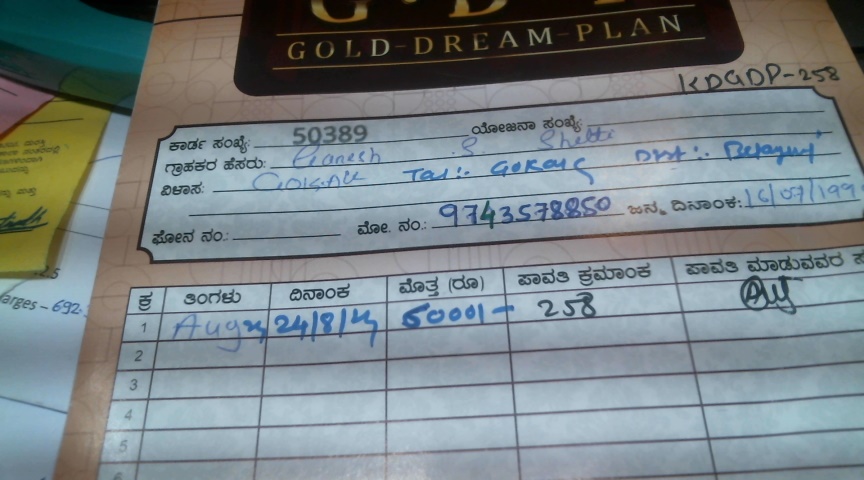 GOLD-DREAM-PLAN
KDGDP-258
ಕಾರ್ಡ ಸಂಖ್ಯೆ: 50389 ಯೋಜನಾ ಸಂಖ್ಯೆ:
ಗ್ರಾಹಕರ ಹೆಸರು: Ganesh S Shetti
ವಿಳಾಸ: Tal:. Gokak Dist:.
ಫೋನ ನಂ: ಮೋ. ನಂ.: 9743578850 ಜನ್ಮ ದಿನಾಂಕ: 16/07/199
ಕ್ರ ತಿಂಗಳು ದಿನಾಂಕ ಮೊತ್ತ (ರೂ) ಪಾವತಿ ಕ್ರಮಾಂಕ ಪಾವತಿ ಮಾಡುವವರ ಸ
1 Aug 24/8/24 5000/- 258
2
3
4
5
arges - 692